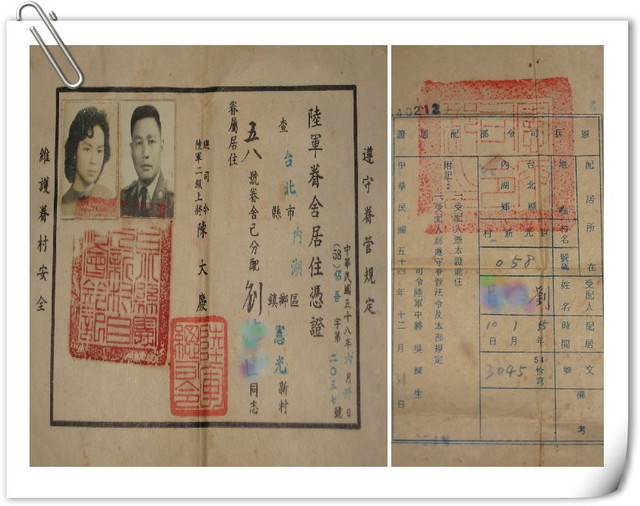 遵守眷管規定
中華民國五十八年六月廿日
字第二〇三七號
陸軍眷舍居住憑證
查台北市縣內湖區鄉鎮憲光新村
五八號眷舍已分配劉 同志
眷屬居住
總司令
陸軍二級上將 陳大慶
維護眷村安全
陸軍總司令
0212
兵司令部配居證
配居所在地
眷村名
號碼
受配人姓名
配居時間
文號
備考
台北縣
內湖鄉
村
058
劉
年1月10日
54
3045
附記：
一受配人憑本證進住
二受配人應遵守眷管法令及本部規定
司令陸軍中將 吳輝生
中華民國五十四年十二月31日